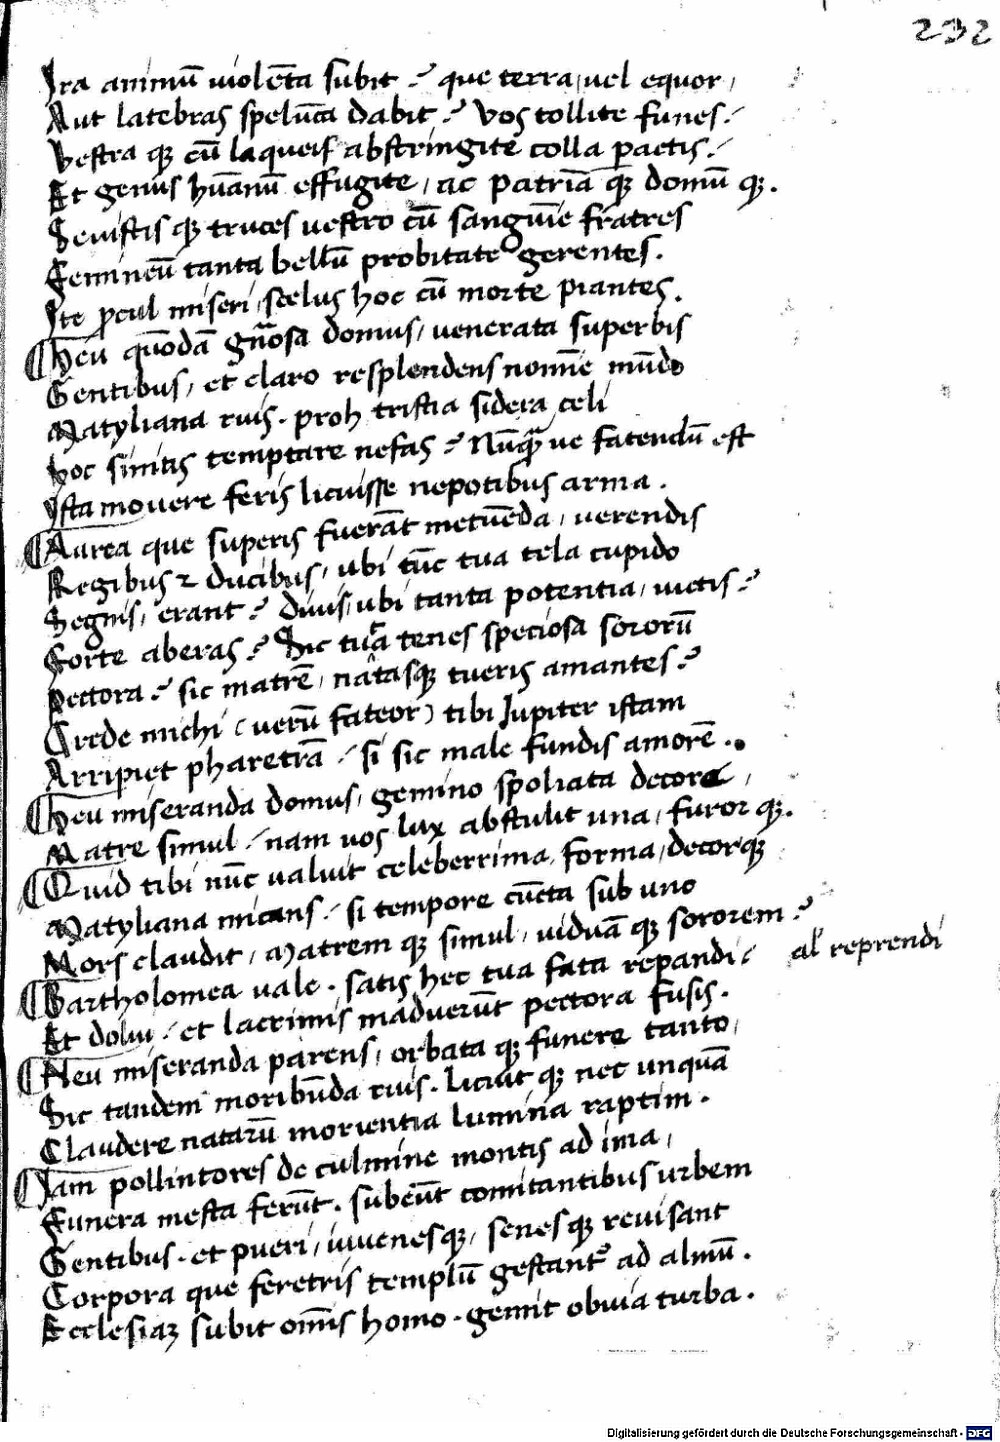 232
Ira animū violēta subit? que terra, vel equor,
Aut latebras spelūca dabit? vos tollite funes.
Vestra qꝫ cū laqueis abstringite colla paetis.
Et genus hūanū effugite, ac patriā qꝫ domū qꝫ.
Sevistis qꝫ truces vestro cū sanguīe fratres
Femineū tanta bellū probitate gerentes.
Ite ꝓcul miseri, scelus hoc cū morte piantes.
Heu quōdā gnāosa domus, venerata superbis
Gentibus, et claro resplendens nomīe mūdo
Matyliana ruis. proh tristia sidera celi
Hoc sinitis temptare nefas? Nūqꝫ ve fatendū est
Ista movere feris licuisse nepotibus arma.
Aurea que superis fuerāt metuēda, verendis
Regibus ⁊ ducibus, ubi tūc tua tela cupido
Segnis, erant? divis, ubi tanta potentia, victis?
Forte aberas? Sic tua tenes speciosa sororū
Pectora? sic matrē, natasqꝫ tueris amantes?
Crede michi (verū fateor) tibi Jupiter istam
Arripiet pharetrā, si sic male fundis amorē.
Heu miseranda domus, gemino spoliata decore,
Matre simul, nam vos lux abstulit una, furor qꝫ.
Quid tibi nūc valuit celeberrima, forma, decorqꝫ
Matyliana micans. si tempore cūcta sub uno
Mors claudit, Matrem qꝫ simul, viduā qꝫ sororem?
Bartholomea vale. satis hec tua fata repandi. al' reprendi
Et dolui, et lacrimis maduerūt pectora fusis.
Neu miseranda parens, orbata qꝫ funere tanto,
Sic tandem moribūda ruis. licuit qꝫ nec unquā
Claudere natarū morientia lumina raptim.
Iam pollintores de culmine montis ad ima,
Funera mesta ferūt. subeūt comitantibus urbem
Gentibus. et pueri, iuvenesqꝫ, senesqꝫ revisant
Corpora que feretris templū gestant' ad almū.
Ecclesiaꝫ subit omīs homo. gemit obvia turba.
Digitalisierung gefördert durch die Deutsche Forschungsgemeinschaft - DFG